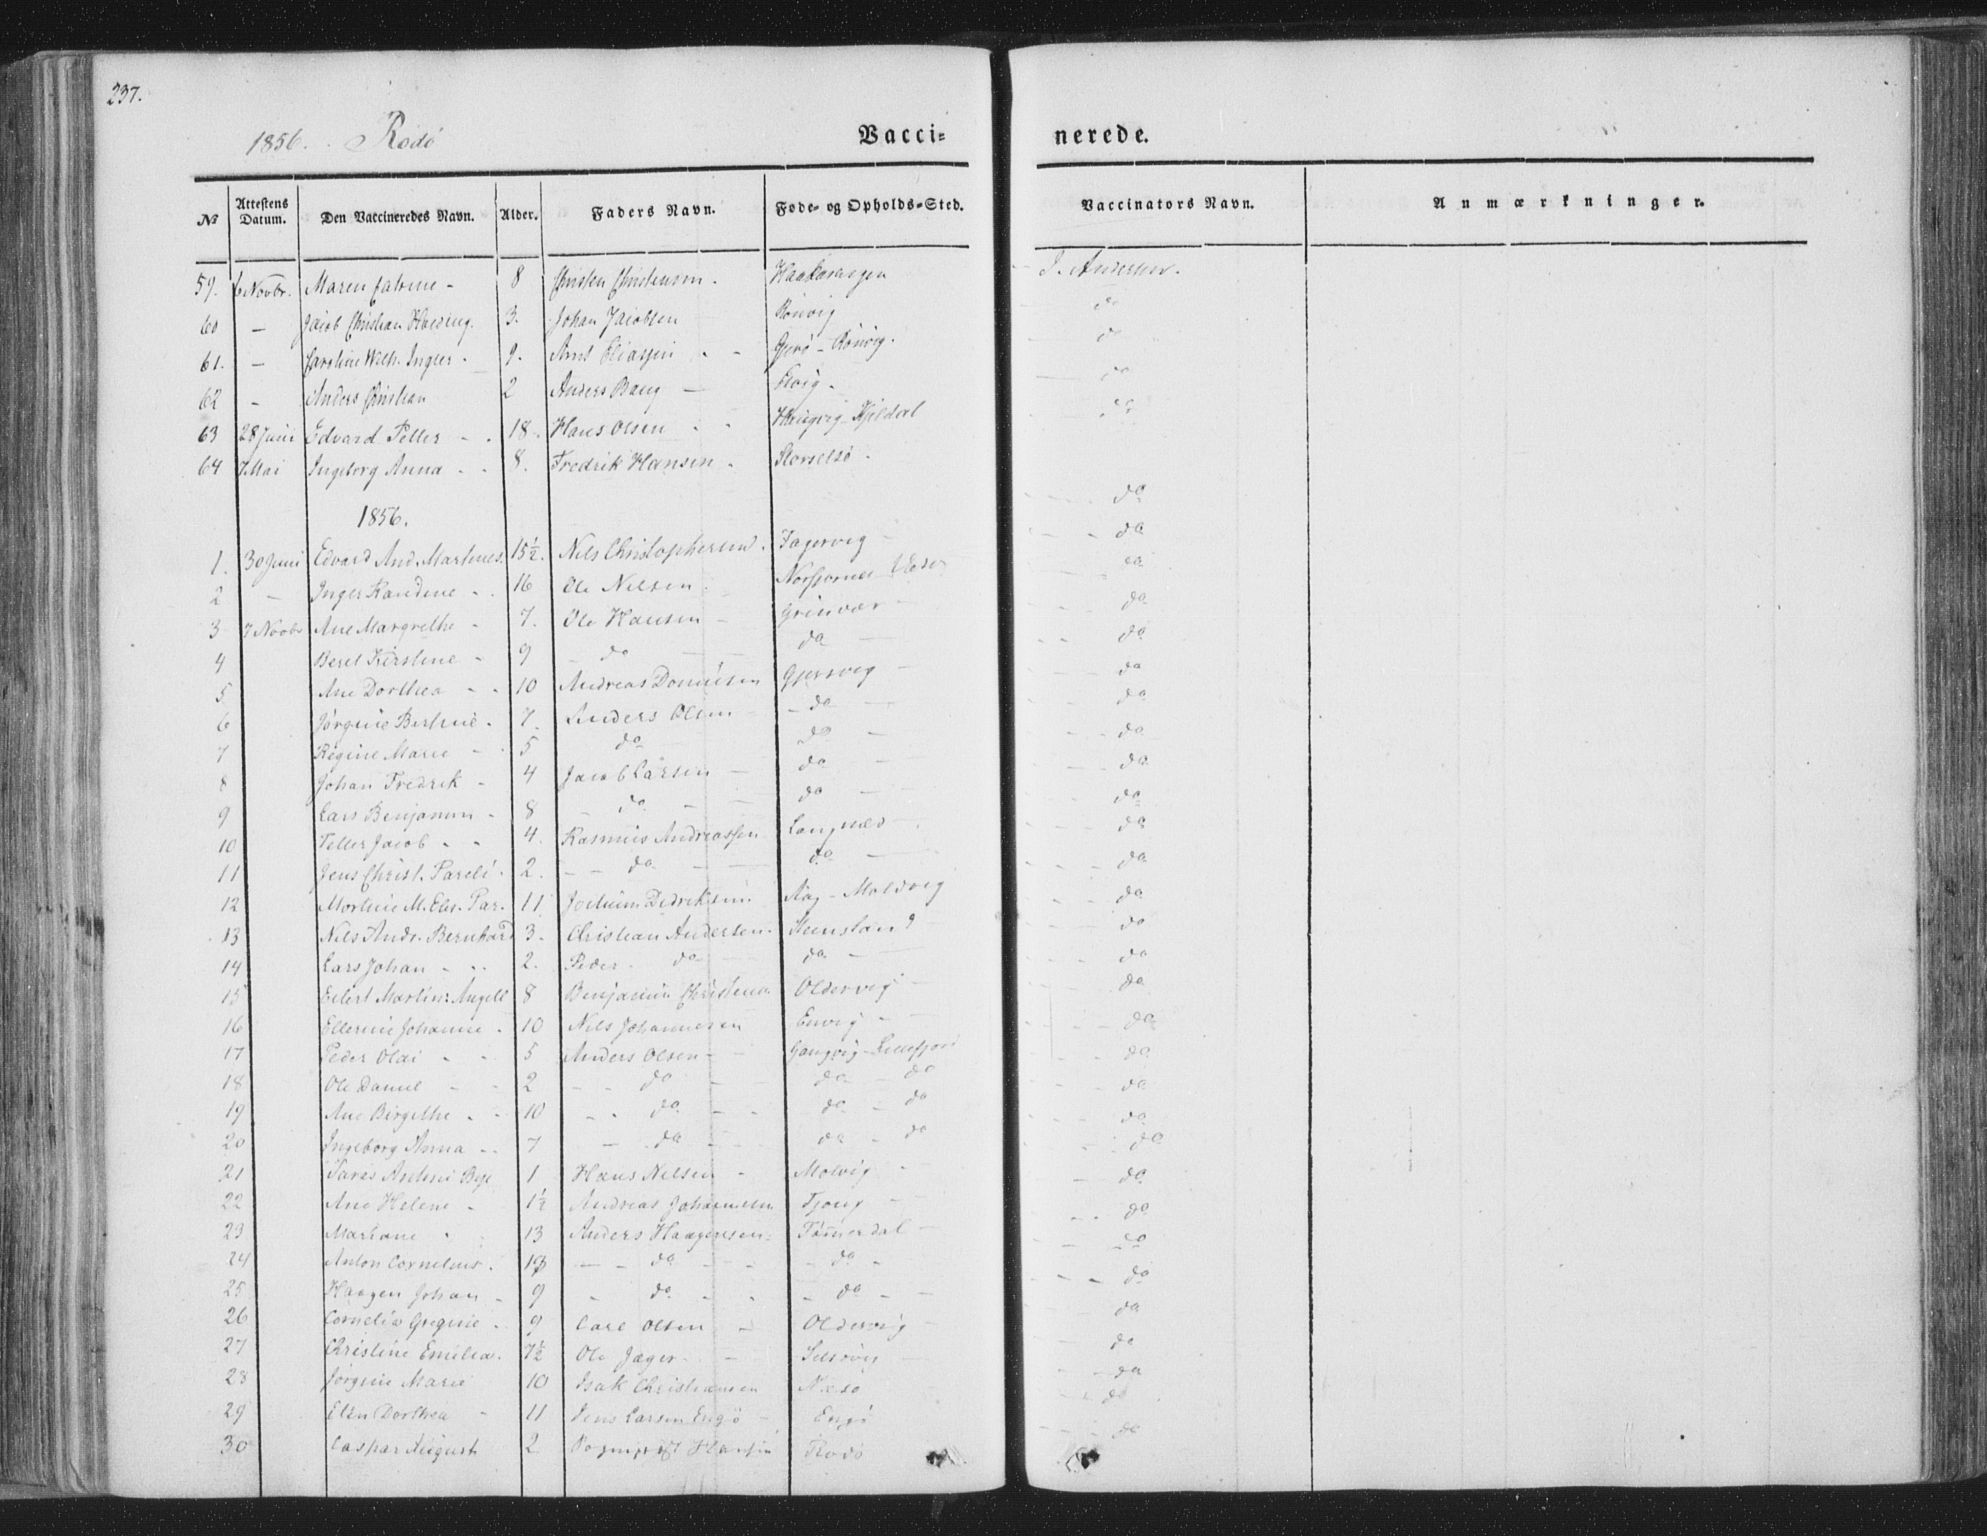 237.
1856. Rodö Vacci= nerede.
No Attestens Datum. Den Vaccineredes Navn. Alder. Faders Navn. Føde- og Opholds-Sted. Vaccinators Navn. Anmærkninger.
59. 6 Novbr. Maren - 8 Christen Christensen. J. Andersen.
60 — Jacob Christian 3. Johan Jacobsen Rönvig do
61. — Caroline Wilh. Inger - 9. Arnt Eliassen - - Rönvig. do
62 - Anders Christian 2 Anders Bang — do
63 28 Juni Edvard Petter - - 18. Hans Olsen - - Kjeldal do
64 7 Mai Ingeborg Anna - - 8. Fredrik Hansen - Storselsö - do
1856.
1. 30 Juni Edvard And. Martines. 15½. Nils Christophersen. Fagervig - do
2 — Inger Randine - . 16 Ole Nilsen. do
3 7 Novbr Ane Margrethe - 7. Ole Hansen - Grinvær - do
4 Beret Kirstine - 9 - do - do — do
5 Ane Dorthea - - 10 Andreas Gjersvig - do
6 Jörgine Bertine - 7. Anders Olsen - - do — do
7 Regine Marie - - 5 do do — do
8 Johan Fredrik - 4 Jacob Larsen - do — do
9 Lars Benjamin - 8 - do - do — do
10 Petter Jacob - - 4. Rasmus Andreassen Langnæs - do
11 Jens Christ. Pareli - 2. - - do - do — do
12 Mortine M. Elis. Par. 11 Jochum Didriksen. Aag - Moldvig do
13 Nils Andr. Bernhard 3. Christian Andersen. Steensland do
14 Lars Johan - - 2. Peder - do - do — do
15 Eilert Martin: Angell 8 Benjamin Oldervig - do
16 Ellerine Johanne - 10 Nils Johannesen Envig - - do
17 Peder Olai - - 5 Anders Olsen - - do
18 Ole Daniel - - 2 - - do - do - do do
19 Ane Birgithe - - 10 - - do - - do - do do
20 Ingeborg Anna - - 7 - do - do - do do
21 1 Hans Nilsen - Molvig - do
22 Ane Helene - 1½ Andreas Johannesen Tjong - do
23 Mariane - 13 Anders Haagensen - Tömmerdal - do
24 Anton Cornelius. - - do - - - do - do
25 Haagen Johan - 9 - do - - - do - - do
26 Cornelia Gregine - 9 Carl Olsen - Oldervig - do
27 Christine Emilia. 7½ Ole Jæger - - do
28 Jörgine Marie 10 Isak Christensen Næsö do
29 Elen Dorthea - 11 Jens Larsen Engö - Engö do
30 Caspar August 2 Rodö do